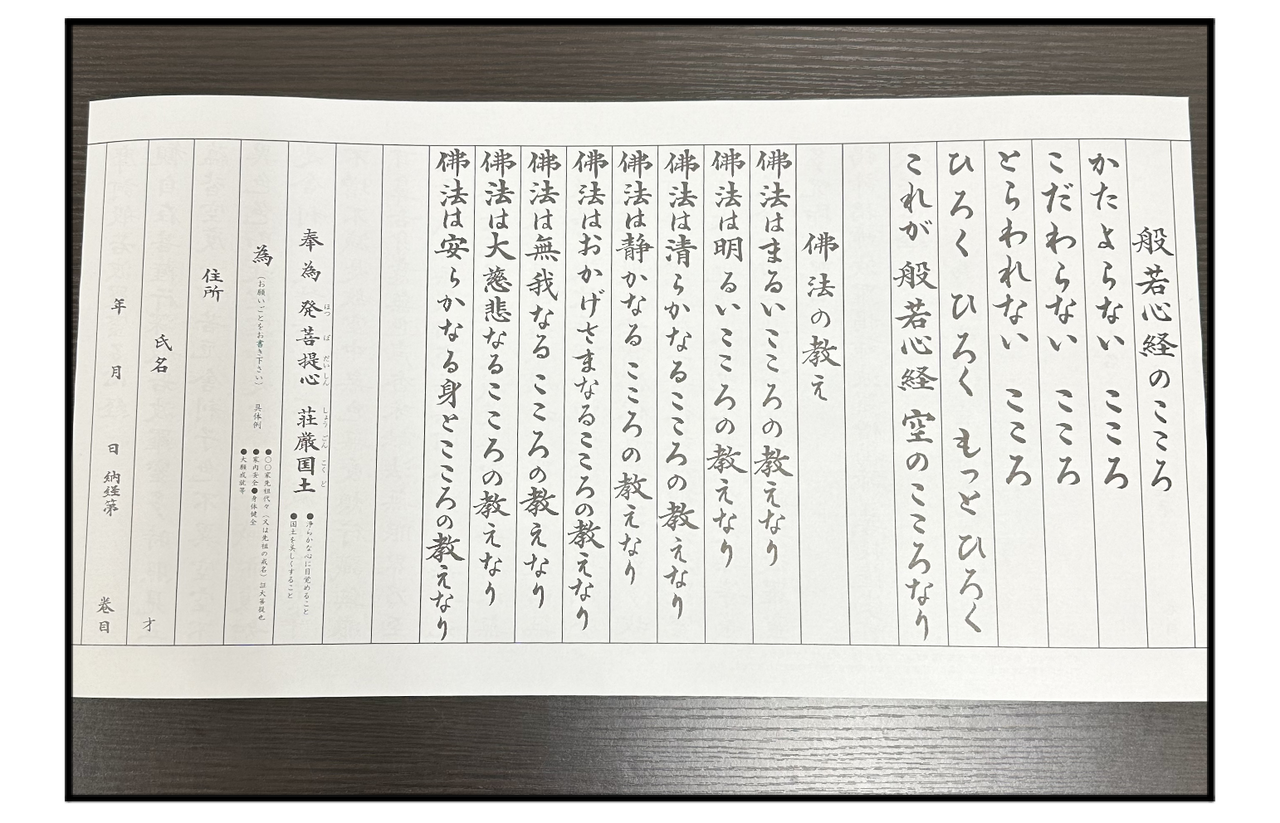 般若心経のこころ
かたよらない こころ
こだわらない こころ
とらわれない こころ
ひろく ひろく もっと ひろく
これが 般若心経 空のこころなり
佛法の教え
佛法はまるいこころの教えなり
佛法は明るいこころの教えなり
佛法は清らかなるこころの教えなり
佛法は静かなる こころの教えなり
佛法はおかげさまなるこころの教えなり
佛法は無我なる こころの教えなり
佛法は大慈悲なるこころの教えなり
佛法は安らかなる身とこころの教えなり
奉為 発菩提心 荘厳国土
ほつ ぼ だいしん しょう ごん こく ど
●浄らかな心に目覚めること
●国土を美しくすること
為(お願いごとをお書き下さい) 具体例
●〇〇家先祖代々(又は先祖の戒名)証大菩提也
●家内安全●身体健全
●大願成就等
住所
氏名 才
年 月 日 納経第 巻目